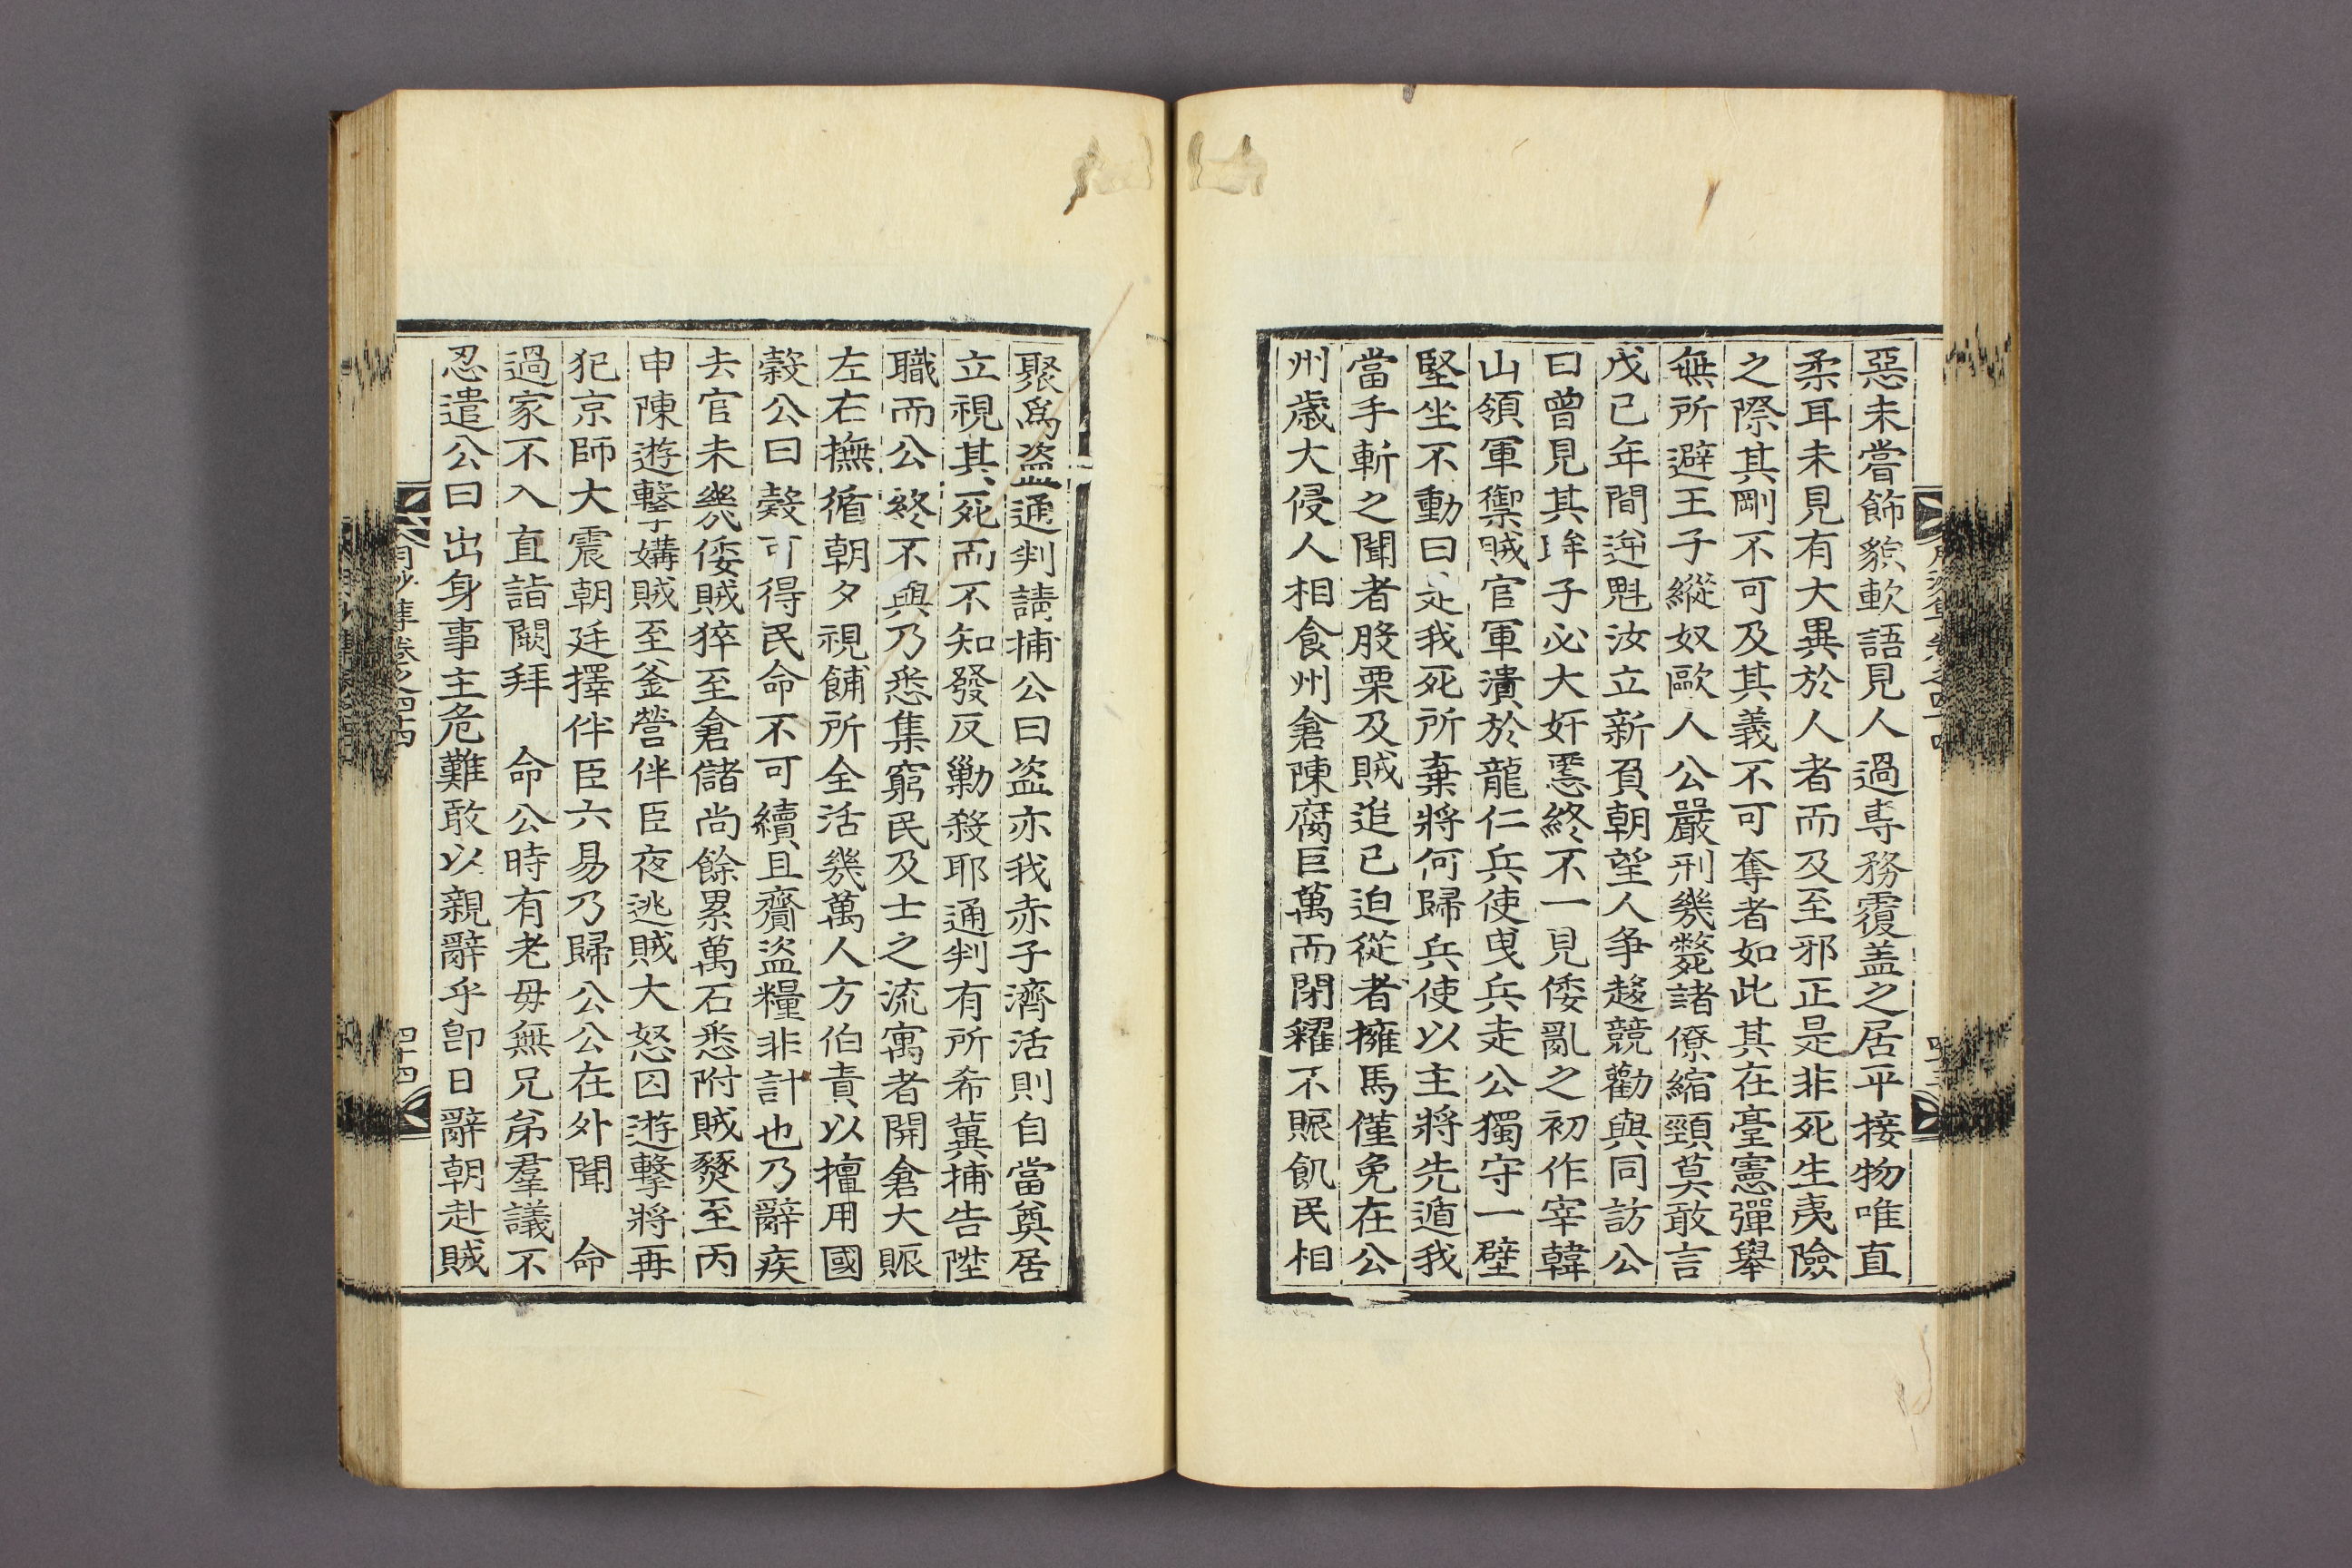 惡未嘗飾貌軟語見人過專務覆盖之居平接物唯直
柔耳未見有大異於人者而及至邪正是非死生夷險
之際其剛不可及其義不可奪者如此其在臺憲彈擧
無所避王子縱奴歐人公嚴刑幾斃諸僚縮頸莫敢言
戊己年間逆魁汝立新負朝望人争趍競勸與同訪公
曰曾見其眸子必大奸慝終不一見倭亂之初作宰韓
山領軍禦賊官軍潰於龍仁兵使曳兵走公獨守一壁
堅坐不動曰此我死所棄將何歸兵使以主將先遁我
當手斬之聞者股栗及賊追已迫從者擁馬僅免在公
州歲大侵人相食州倉陳腐巨萬而閉糶不賑飢民相
聚爲盜通判請捕公曰盜亦我赤子濟活則自當奠居
立視其死而不知發反勦殺耶通判有所希冀捕告陞
職而公終不與乃悉集窮民及士之流寓者開倉大賑
左右撫循朝夕視餔所全活幾萬人方伯責以擅用國
穀公曰穀可得民命不可續且齎盜糧非計也乃辭疾
去官未幾倭賊猝至倉儲尚餘累萬石悉附賊燹至丙
申陳遊擊媾賊至釜營伴臣夜逃賊大怒囚遊擊將再
犯京師大震朝廷擇伴臣六易乃歸公公在外聞 命
過家不入直詣闕拜 命公時有老母無兄弟羣議不
忍遣公曰出身事主危難敢以親辭乎卽日辭朝赴賊
月沙集卷之四十四
四十四